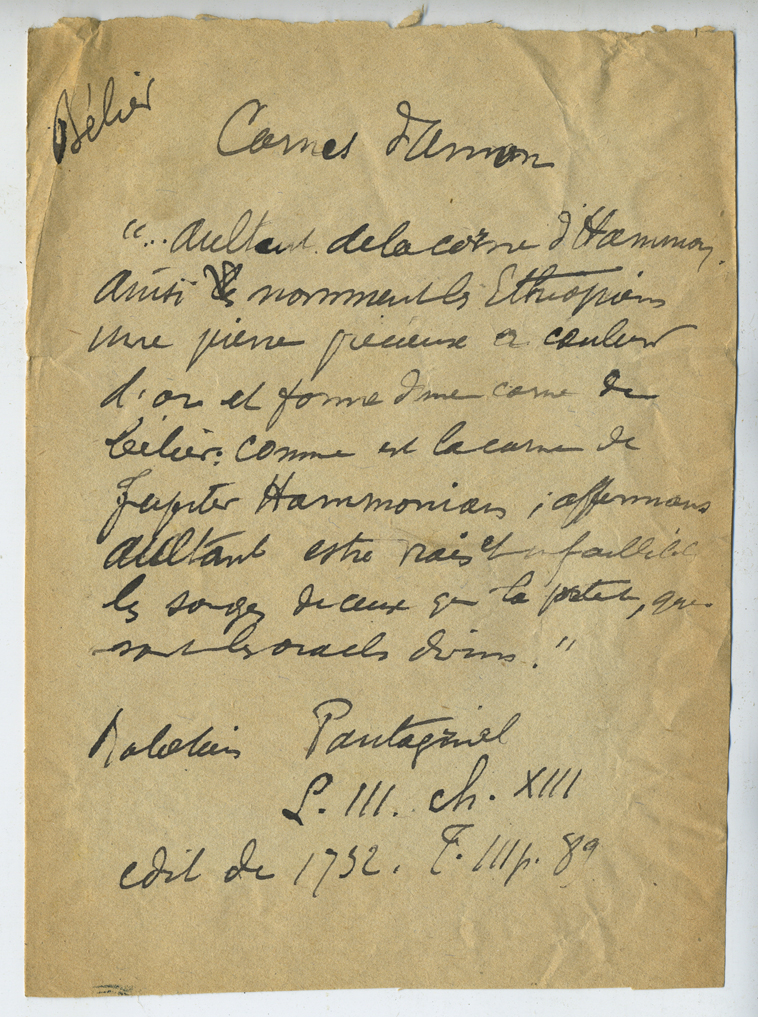 Bélier
Cornes d'Amon
"... aultant de la corne d'Hammon,
ainsi nomment les Ethiopiens
une pierre precieuse a couleur
d'or et forme d'une corne de
bélier: comme est la corne de
Jupiter Hammonien; affermans
aultant estre vrais et infaillibles
les songes de ceux qui la portent, que
sont les oracles divins."
Rabelais Pantagruel
L. III. ch. XIII
edit de 1732. T. III p. 89